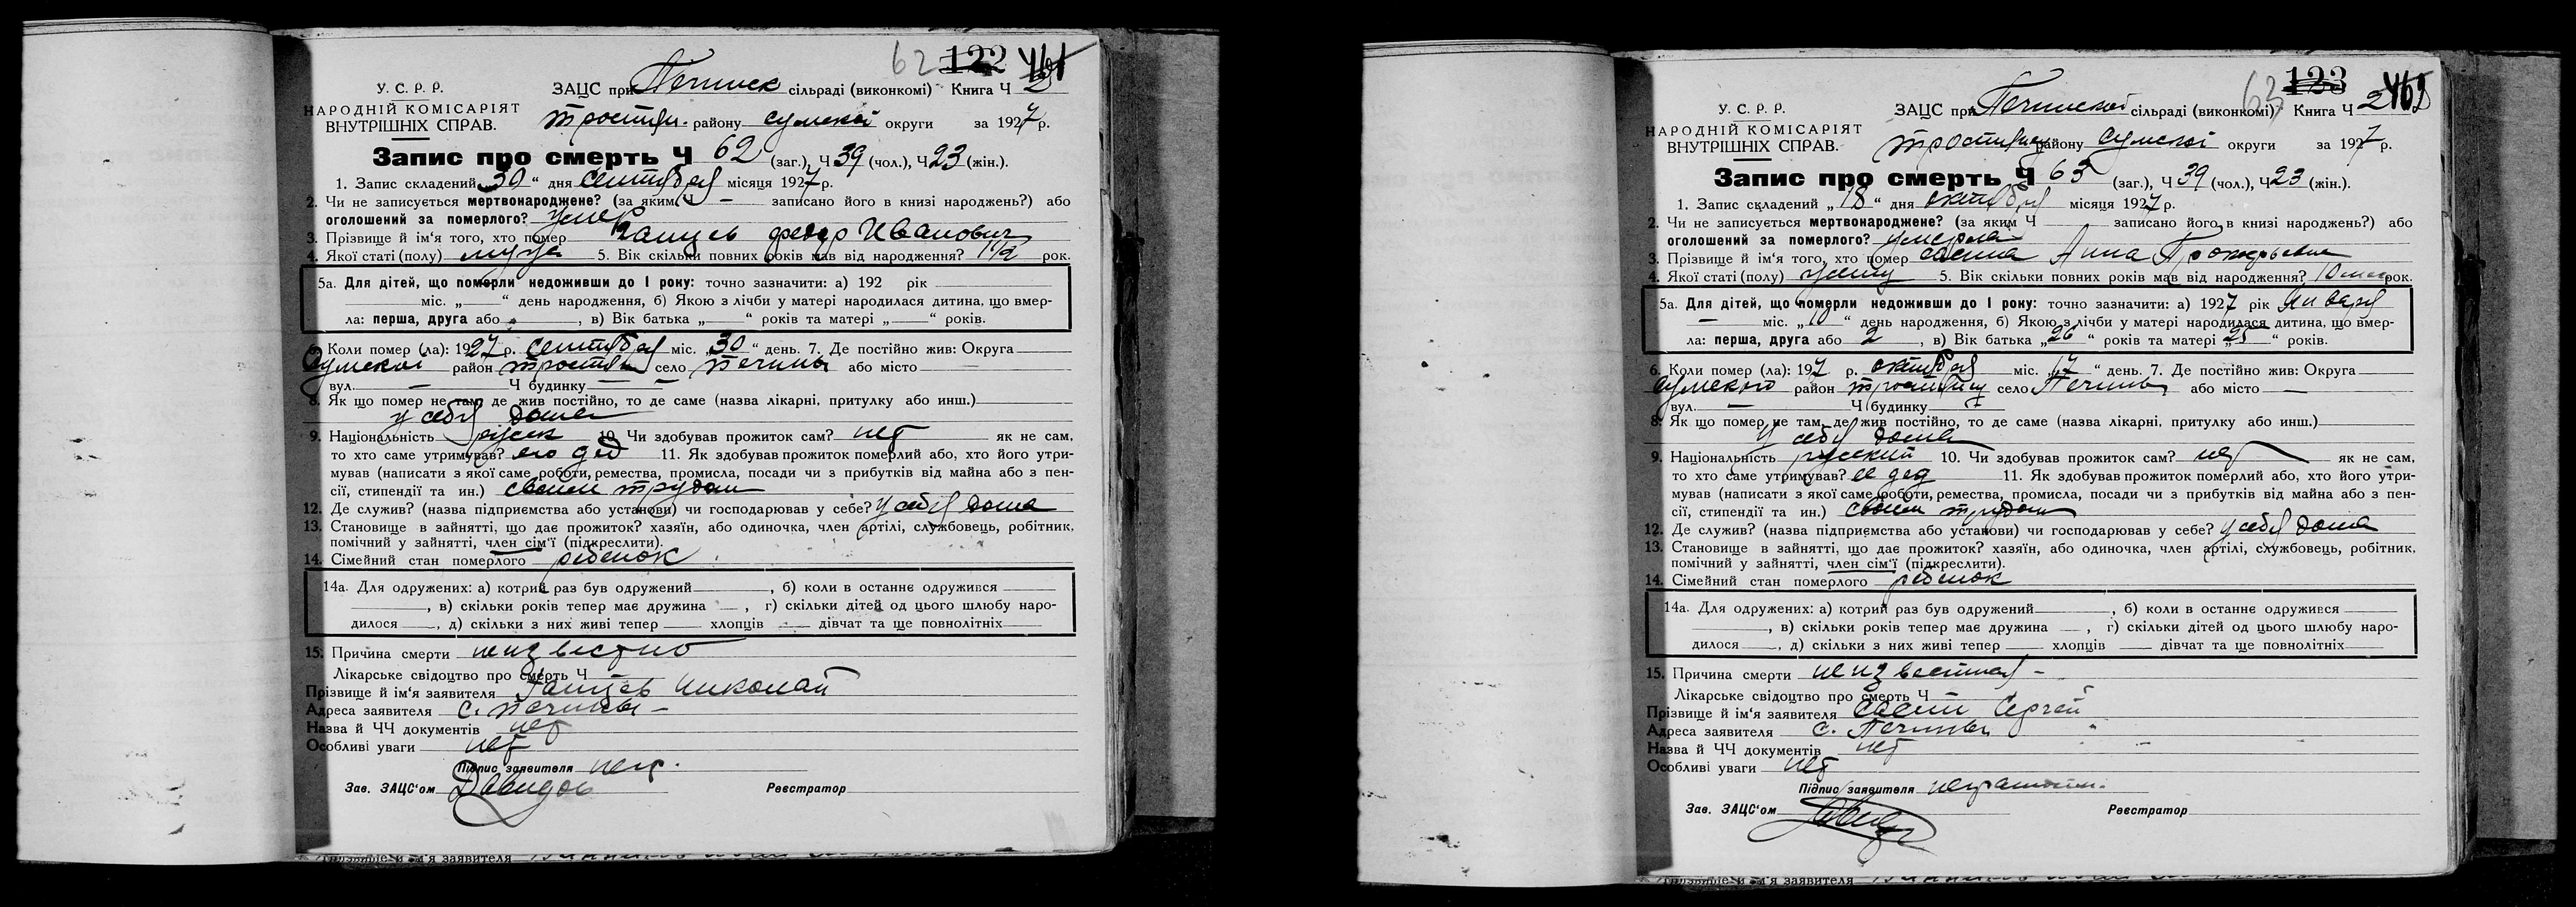 62 122
У. С. Р. Р. ЗАЦС при Печинск сільраді (виконкомі) Книга Ч 2
НАРОДНІЙ КОМІСАРІЯТ
ВНУТРІШНІХ СПРАВ. Тростян. району Сумской округи за 1927 р.
Запис про смерть Ч 62 (заг.), Ч 39 (чол.), Ч 23 (жін.).
1. Запис складений „30“ дня сентября місяця 1927 р.
2. Чи не записується мертвонароджене? (за яким Ч — записано його в книзі народжень?) або
оголошений за померлого? умер
3. Прізвище й ім‘я того, хто помер федор Иванович
4. Якої статі (полу) муж 5. Вік скільки повних років мав від народження? 1 1/2 рок.
5а. Для дітей, що померли недоживши до І року: точно зазначити: а) 192 рік
міс. „ “ день народження, б) Якою з лічби у матері народилася дитина, що вмер-
ла: перша, друга або , в) Вік батька „ “ років та матері „ “ років.
6. Коли помер (ла): 1927 р. сентября міс. „30“ день. 7. Де постійно жив: Округа
Сумской район Тростян село Печины або місто —
вул. — Ч будинку —
8. Як що помер не там, де жив постійно, то де саме (назва лікарні, притулку або инш.)
у себя дома
9. Національність русск 10. Чи здобував прожиток сам? нет як не сам,
то хто саме утримував? его дед 11. Як здобував прожиток померлий або, хто його утри-
мував (написати з якої саме роботи, ремества, промисла, посади чи з прибутків від майна або з пен-
сії, стипендії та ин.) своим трудом
12. Де служив? (назва підприємства або установи) чи господарював у себе? у себя дома
13. Становище в зайнятті, що дає прожиток? хазяїн, або одиночка, член артілі, службовець, робітник,
помічний у зайнятті, член сім‘ї (підкреслити).
14. Сімейний стан померлого ребенок
14а. Для одружених: а) котрий раз був одружений , б) коли в останнє одружився
, в) скільки років тепер має дружина , г) скільки дітей од цього шлюбу наро-
дилося , д) скільки з них живі тепер хлопців дівчат та ще повнолітніх
15. Причина смерти неизвестно
Лікарське свідоцтво про смерть Ч
Прізвище й ім‘я заявителя Николай
Адреса заявителя с. Печины —
Назва й ЧЧ документів нет
Особливі уваги нет
Підпис заявителя негр.
Зав. ЗАЦС‘ом Давидов Реєстратор
63 123
У. С. Р. Р. ЗАЦС при Печинской сільраді (виконкомі) Книга Ч 2
НАРОДНІЙ КОМІСАРІЯТ
ВНУТРІШНІХ СПРАВ. Тростянец району Сумской округи за 1927 р.
Запис про смерть Ч 63 (заг.), Ч 39 (чол.), Ч 23 (жін.).
1. Запис складений „18“ дня октября місяця 1927 р.
2. Чи не записується мертвонароджене? (за яким Ч записано його в книзі народжень?) або
оголошений за померлого? умерла
3. Прізвище й ім‘я того, хто помер Анна
4. Якої статі (полу) 5. Вік скільки повних років мав від народження? 10 мес рок.
5а. Для дітей, що померли недоживши до І року: точно зазначити: а) 1927 рік Января
— міс. „10“ день народження, б) Якою з лічби у матері народилася дитина, що вмер-
ла: перша, друга або 2 , в) Вік батька „26“ років та матері „25“ років.
6. Коли помер (ла): 197 р. октября міс. „17“ день. 7. Де постійно жив: Округа
Сумского район село Печины або місто —
вул. — Ч будинку —
8. Як що помер не там, де жив постійно, то де саме (назва лікарні, притулку або инш.)
у себя дома
9. Національність русский 10. Чи здобував прожиток сам? нет як не сам,
то хто саме утримував? ее дед 11. Як здобував прожиток померлий або, хто його утри-
мував (написати з якої саме роботи, ремества, промисла, посади чи з прибутків від майна або з пен-
сії, стипендії та ин.) своим трудом
12. Де служив? (назва підприємства або установи) чи господарював у себе? у себя дома
13. Становище в зайнятті, що дає прожиток? хазяїн, або одиночка, член артілі, службовець, робітник,
помічний у зайнятті, член сім‘ї (підкреслити).
14. Сімейний стан померлого ребенок
14а. Для одружених: а) котрий раз був одружений , б) коли в останнє одружився
, в) скільки років тепер має дружина , г) скільки дітей од цього шлюбу наро-
дилося , д) скільки з них живі тепер хлопців дівчат та ще повнолітніх
15. Причина смерти неизвестная —
Лікарське свідоцтво про смерть Ч
Прізвище й ім‘я заявителя Сергей
Адреса заявителя с. Печины
Назва й ЧЧ документів нет
Особливі уваги нет
Підпис заявителя неграмотн.
Зав. ЗАЦС‘ом Реєстратор